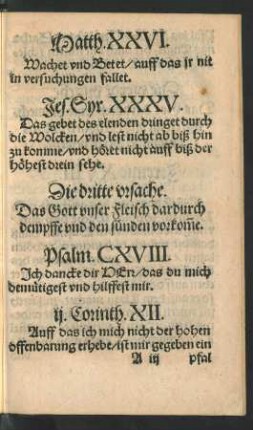 Matth. XXVI.
Wachet vnd Betet/auff das jr nit
in versuchungen fallet.
Jes. Syr. XXXV.
Das gebet des elenden dringet durch
die Wolcken/vnd lest nicht ab biß hin
zu komme/vnd höret nicht auff biß der
höhest drein sehe.
Die dritte vrsache.
Das Gott vnser Fleisch dardurch
dempffe vnd den sünden vorkom̃e.
Psalm. CXVIII.
Ich dancke dir HErr/das du mich
demütigest vnd hilffest mir.
ij. Corinth. XII.
Auff das ich mich nicht der hohen
offenbarung erhebe/ist mir gegeben ein
A iij pfal